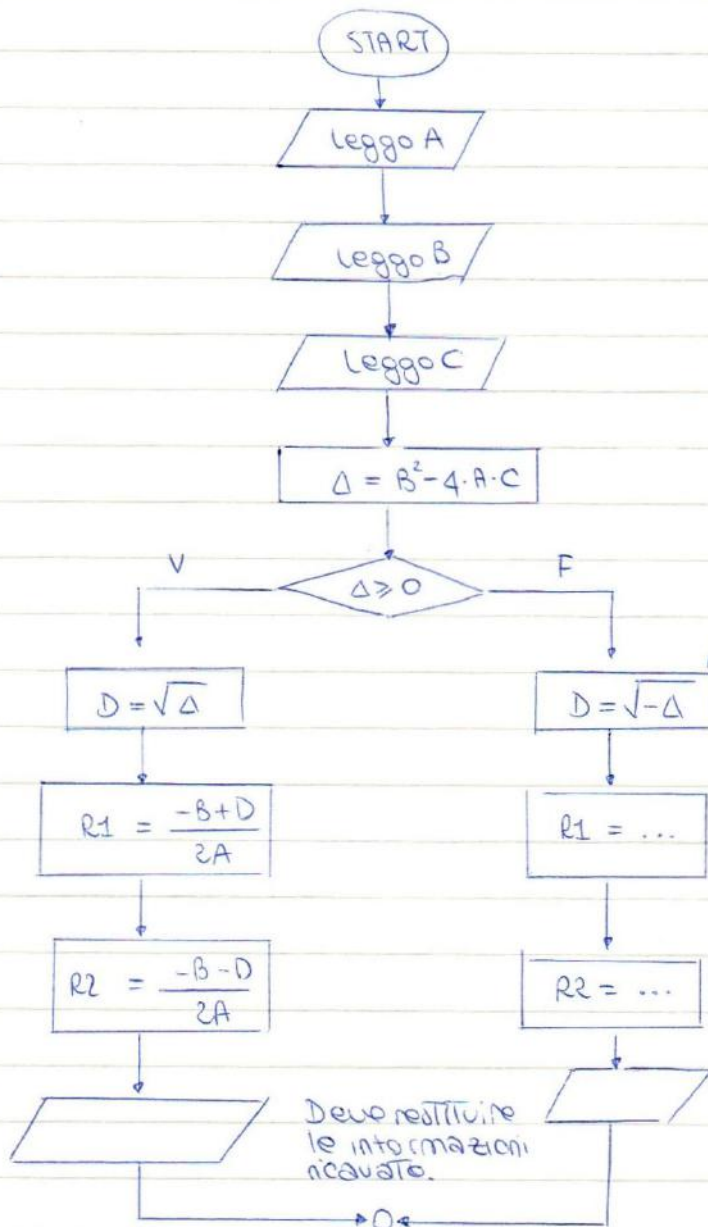 START
Leggo A
Leggo B
Leggo C
Δ = B² - 4·A·C
V
Δ ≥ 0
F
D = √Δ
D = √-Δ
R1 = (-B+D)/2A
R1 = ...
R2 = (-B-D)/2A
R2 = ...
Deve restituire
le informazioni
ricavate.